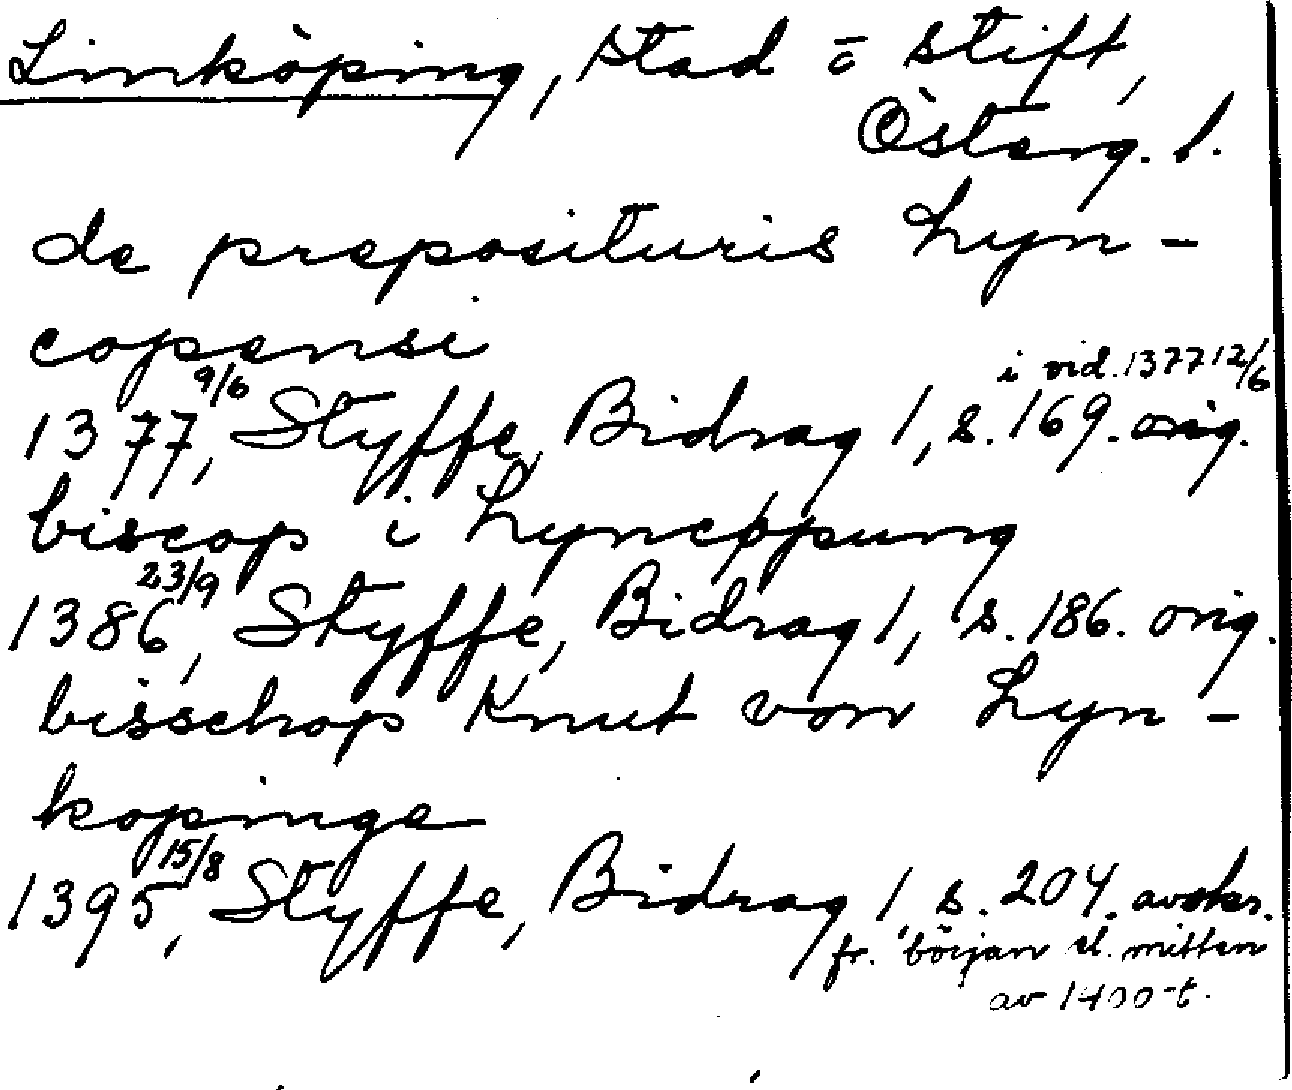 Linköping, stad o stift,
Österg. l.
de preposituris Lyn-
copensi
i vid. 1377 12/6
1377 9/6, Styffe, Bidrag 1, s. 169. orig.
biscop i Lyncøpung
1386 23/9, Styffe, Bidrag 1, s. 186. orig.
bisschop Knut von Lyn-
kopinge
1395 15/8, Styffe, Bidrag 1, s. 204. avskr.
fr. början el. mitten
av 1400-t.